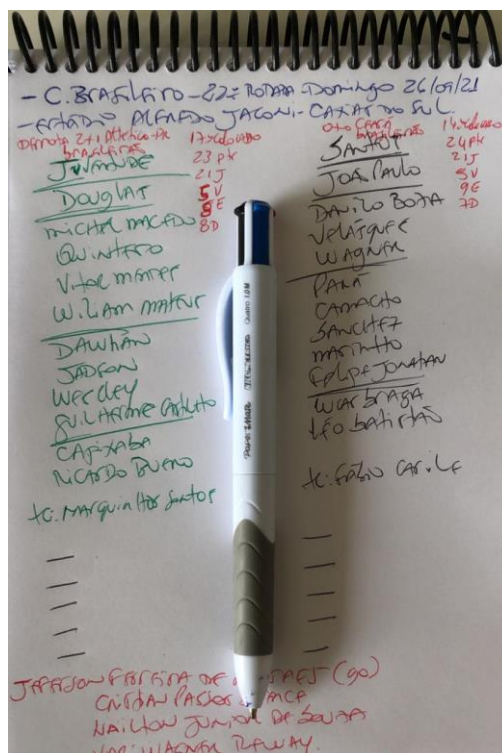 - C. BRASILEIRO - 22ª RODADA DOMINGO 26/09/21
- ESTÁDIO ALFREDO JACONI - CAXIAS DO SUL
DERROTA 2x1 Atlético-PR
BRASILEIRÃO
JUVENTUDE
17º Colocado
23 Pts
21 J
5 V
8 E
8 D
DOUGLAS
MICHEL MACEDO
QUINTERO
VITOR MENDES
WILIAM MATEUS
DAWHAN
JADSON
WESCLEY
GUILHERME CASTILHO
CAPIXABA
RICARDO BUENO
tc: MARQUINHOS SANTOS
0x0 CEARÁ
BRASILEIRÃO
SANTOS
14º Colocado
24 Pts
21 J
5 V
9 E
7 D
JOÃO PAULO
DANILO BOZA
VELÁZQUEZ
WAGNER
PARÁ
CAMACHO
SANCHEZ
MARINHO
FELIPE JONATAN
LUCAS BRAGA
LÉO BATISTÃO
tc: FÁBIO CARILE
JEFERSON FERREIRA DE (GO)
CRISTIAN PASSOS
NAILTON JUNIOR DE SOUZA
VAR: WAGNER REWAY